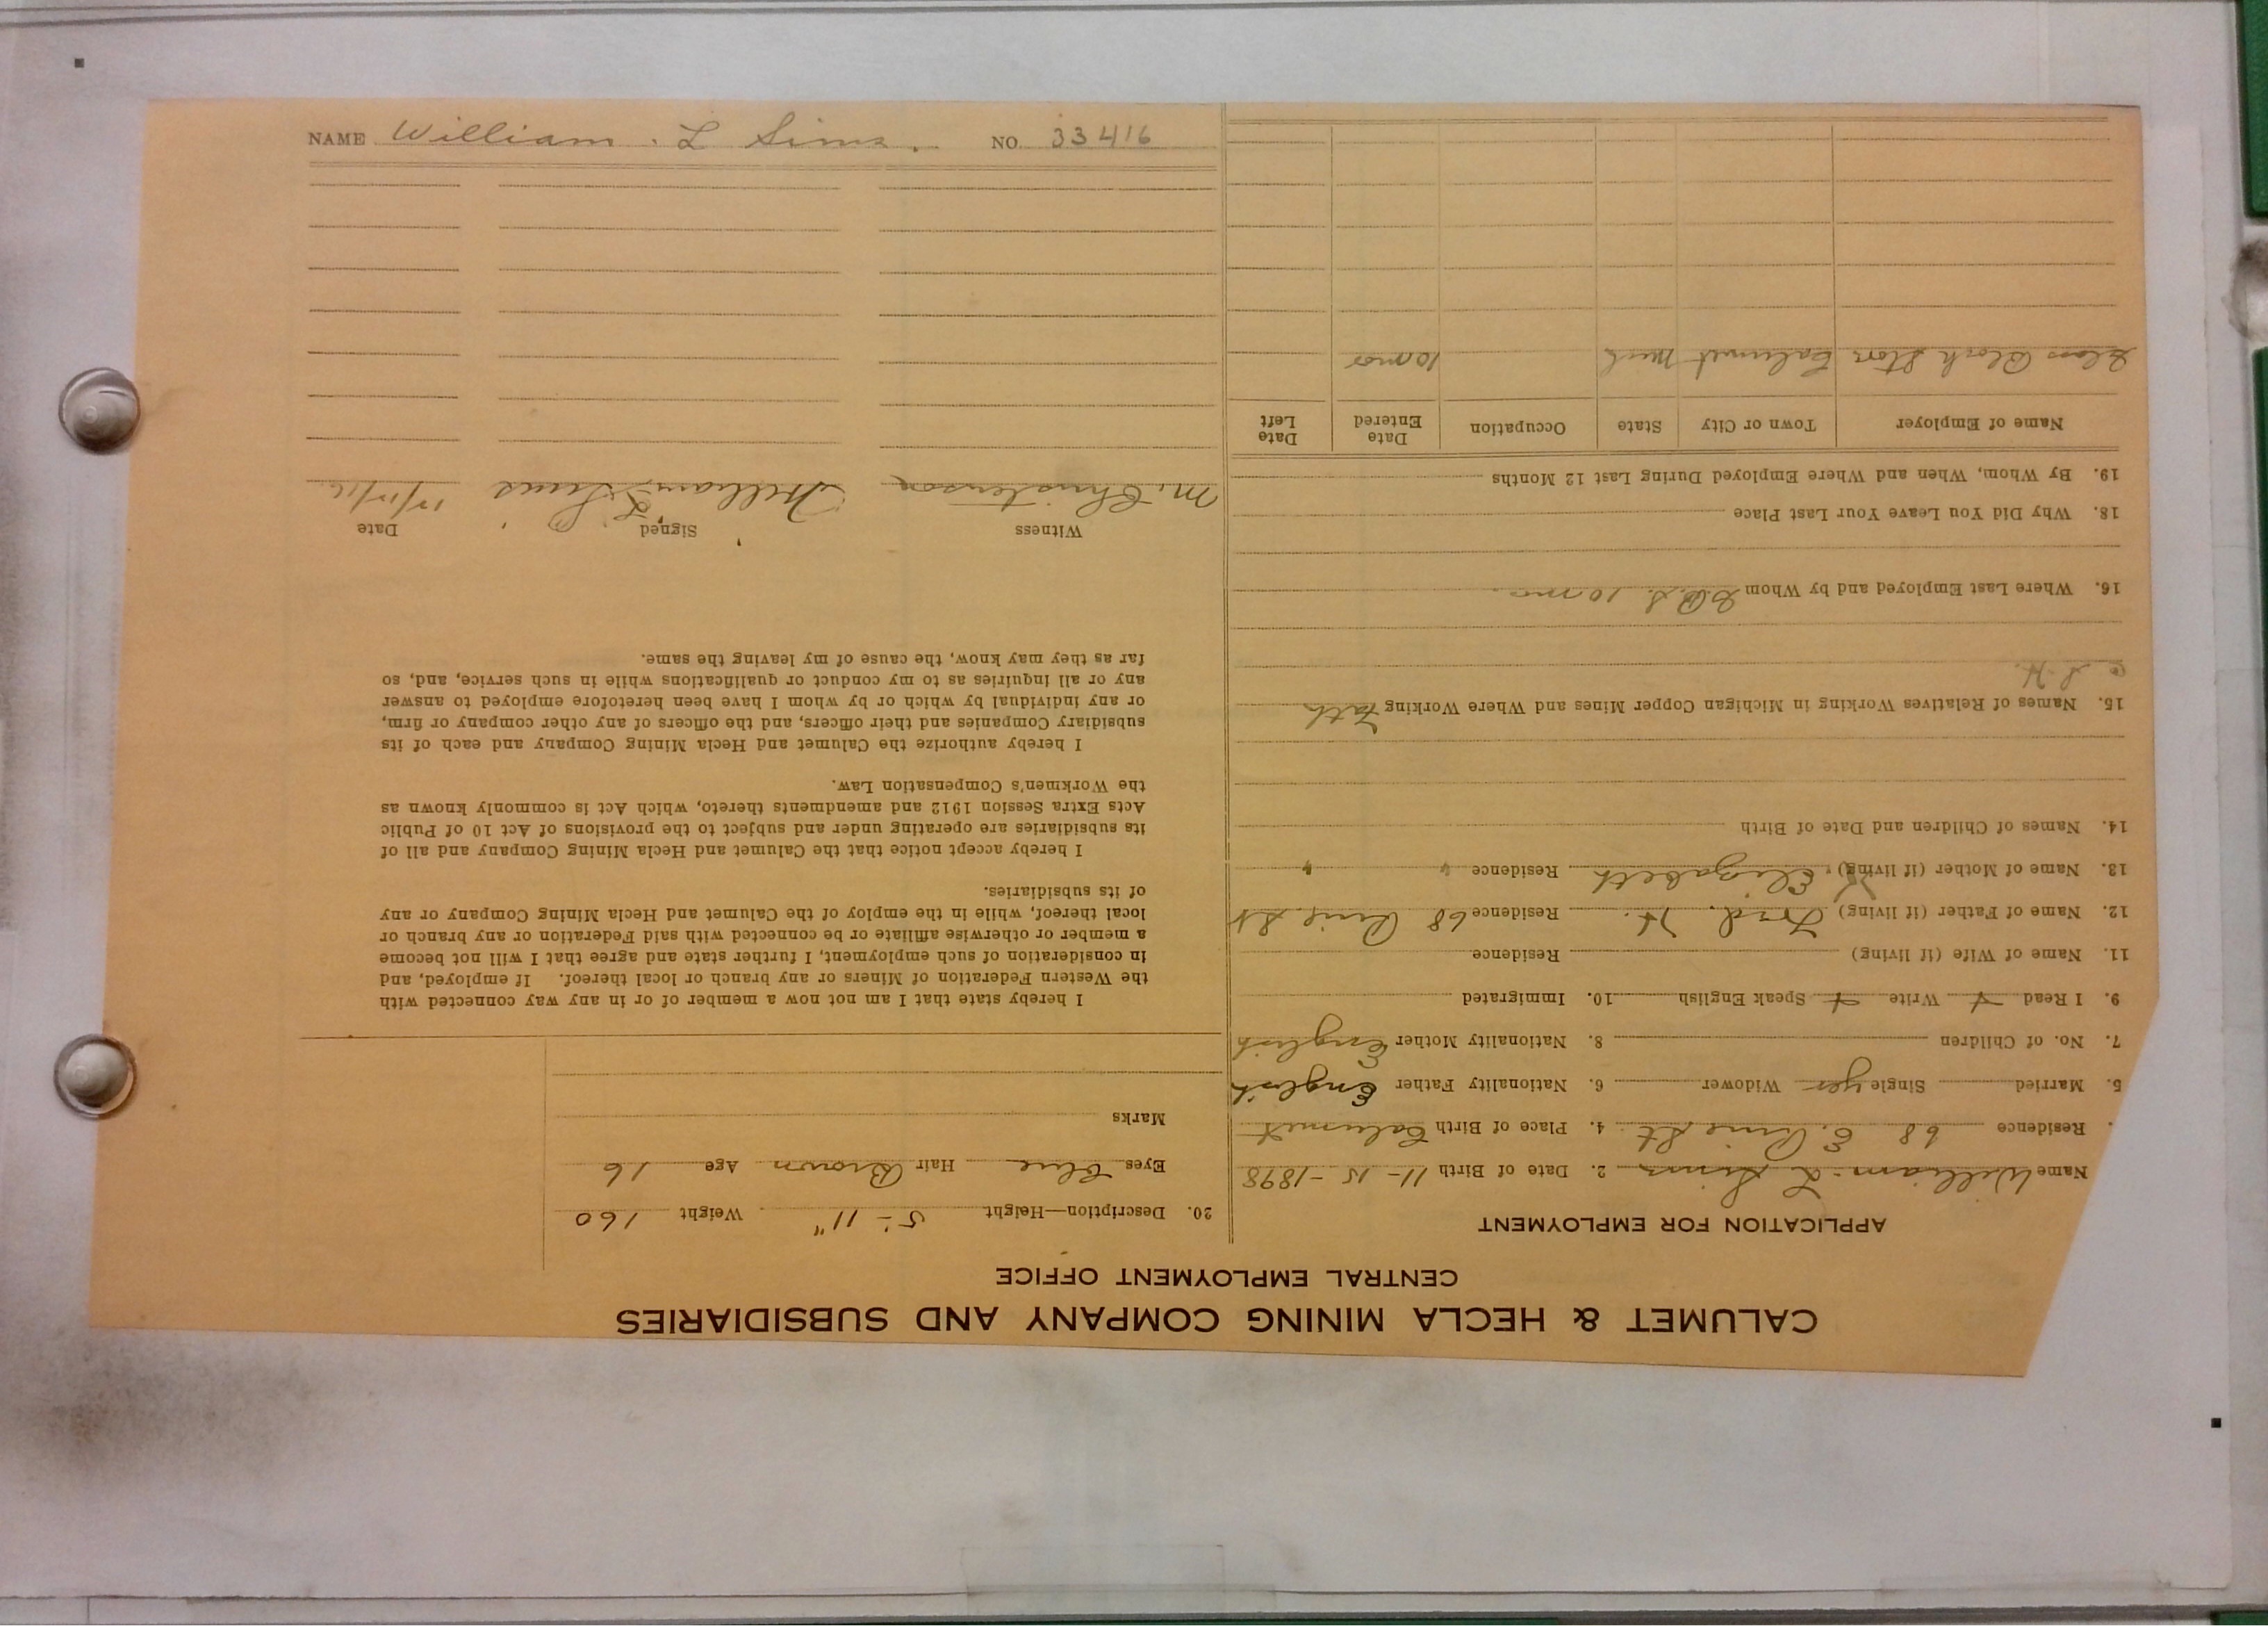 CALUMET & HECLA MINING COMPANY AND SUBSIDIARIES
CENTRAL EMPLOYMENT OFFICE
APPLICATION FOR EMPLOYMENT
Name William. L Sims 2. Date of Birth 11-15-1898
Residence 68 E. Pine St. 4. Place of Birth Calumet
5. Married Single yes Widower 6. Nationality Father English
7. No. of Children 8. Nationality Mother English
9. I Read + Write + Speak English 10. Immigrated
11. Name of Wife (if living) Residence
12. Name of Father (if living) Fred. H. Residence 68 Pine St
13. Name of Mother (if living) Elizabeth Residence " "
14. Names of Children and Date of Birth
15. Names of Relatives Working in Michigan Copper Mines and Where Working Fath
16. Where Last Employed and by Whom G.B.S. 10 mo.
18. Why Did You Leave Your Last Place
19. By Whom, When and Where Employed During Last 12 Months
Name of Employer Town or City State Occupation Date Entered Date Left
Glass Block Stor Calumet Mich 10 mos
20. Description—Height 5-11" Weight 160
Eyes blue Hair Brown Age 16
Marks
I hereby state that I am not now a member of or in any way connected with
the Western Federation of Miners or any branch or local thereof. If employed, and
in consideration of such employment, I further state and agree that I will not become
a member or otherwise affiliate or be connected with said Federation or any branch or
local thereof, while in the employ of the Calumet and Hecla Mining Company or any
of its subsidiaries.
I hereby accept notice that the Calumet and Hecla Mining Company and all of
its subsidiaries are operating under and subject to the provisions of Act 10 of Public
Acts Extra Session 1912 and amendments thereto, which Act is commonly known as
the Workmen's Compensation Law.
I hereby authorize the Calumet and Hecla Mining Company and each of its
subsidiary Companies and their officers, and the officers of any other company or firm,
or any individual by which or by whom I have been heretofore employed to answer
any or all inquiries as to my conduct or qualifications while in such service, and, so
far as they may know, the cause of my leaving the same.
Witness Signed Date
M. Christenson William L Sims
NAME William. L Sims. NO. 33416